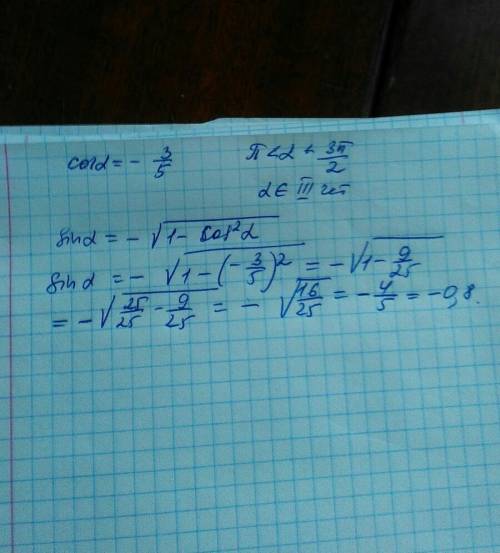 cosα = - 3/5 π < α < 3π/2
α ∈ III чет
sinα = - √(1 - cos²α)
sinα = - √(1 - (-3/5)²) = - √(1 - 9/25)
= - √(25/25 - 9/25) = - √(16/25) = - 4/5 = -0,8.